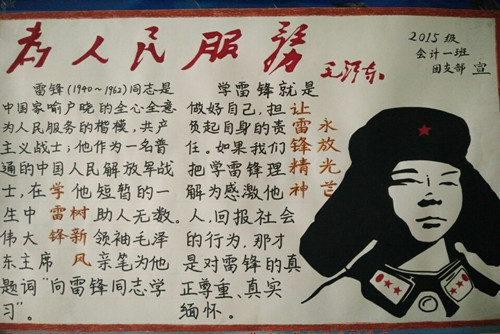 為人民服務
毛泽东
2015级
会计一班
团支部 宣
雷锋(1940~1962)同志是
中国家喻户晓的全心全意
为人民服务的楷模,共产
主义战士;他作为一名普
通的中国人民解放军战
士,在他短暂的一
生中,助人无数。
伟大领袖毛泽
东主席亲笔为他
题词"向雷锋同志学
习"。
学雷锋
树新风
学雷锋就是
做好自己,担
负起自身的责
任。如果我们
把学雷锋理
解为感激他
人,回报社会
的行为,那才
是对雷锋的真
正尊重、真实
缅怀。
让雷锋精神
永放光芒